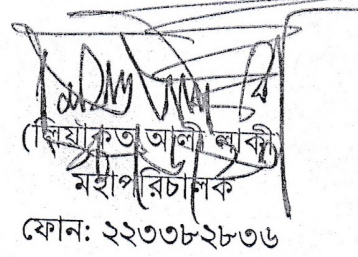 (লিয়াকত আলী লাকী)
মহাপরিচালক
ফোন: ২২৩৩৮২৮৩৬